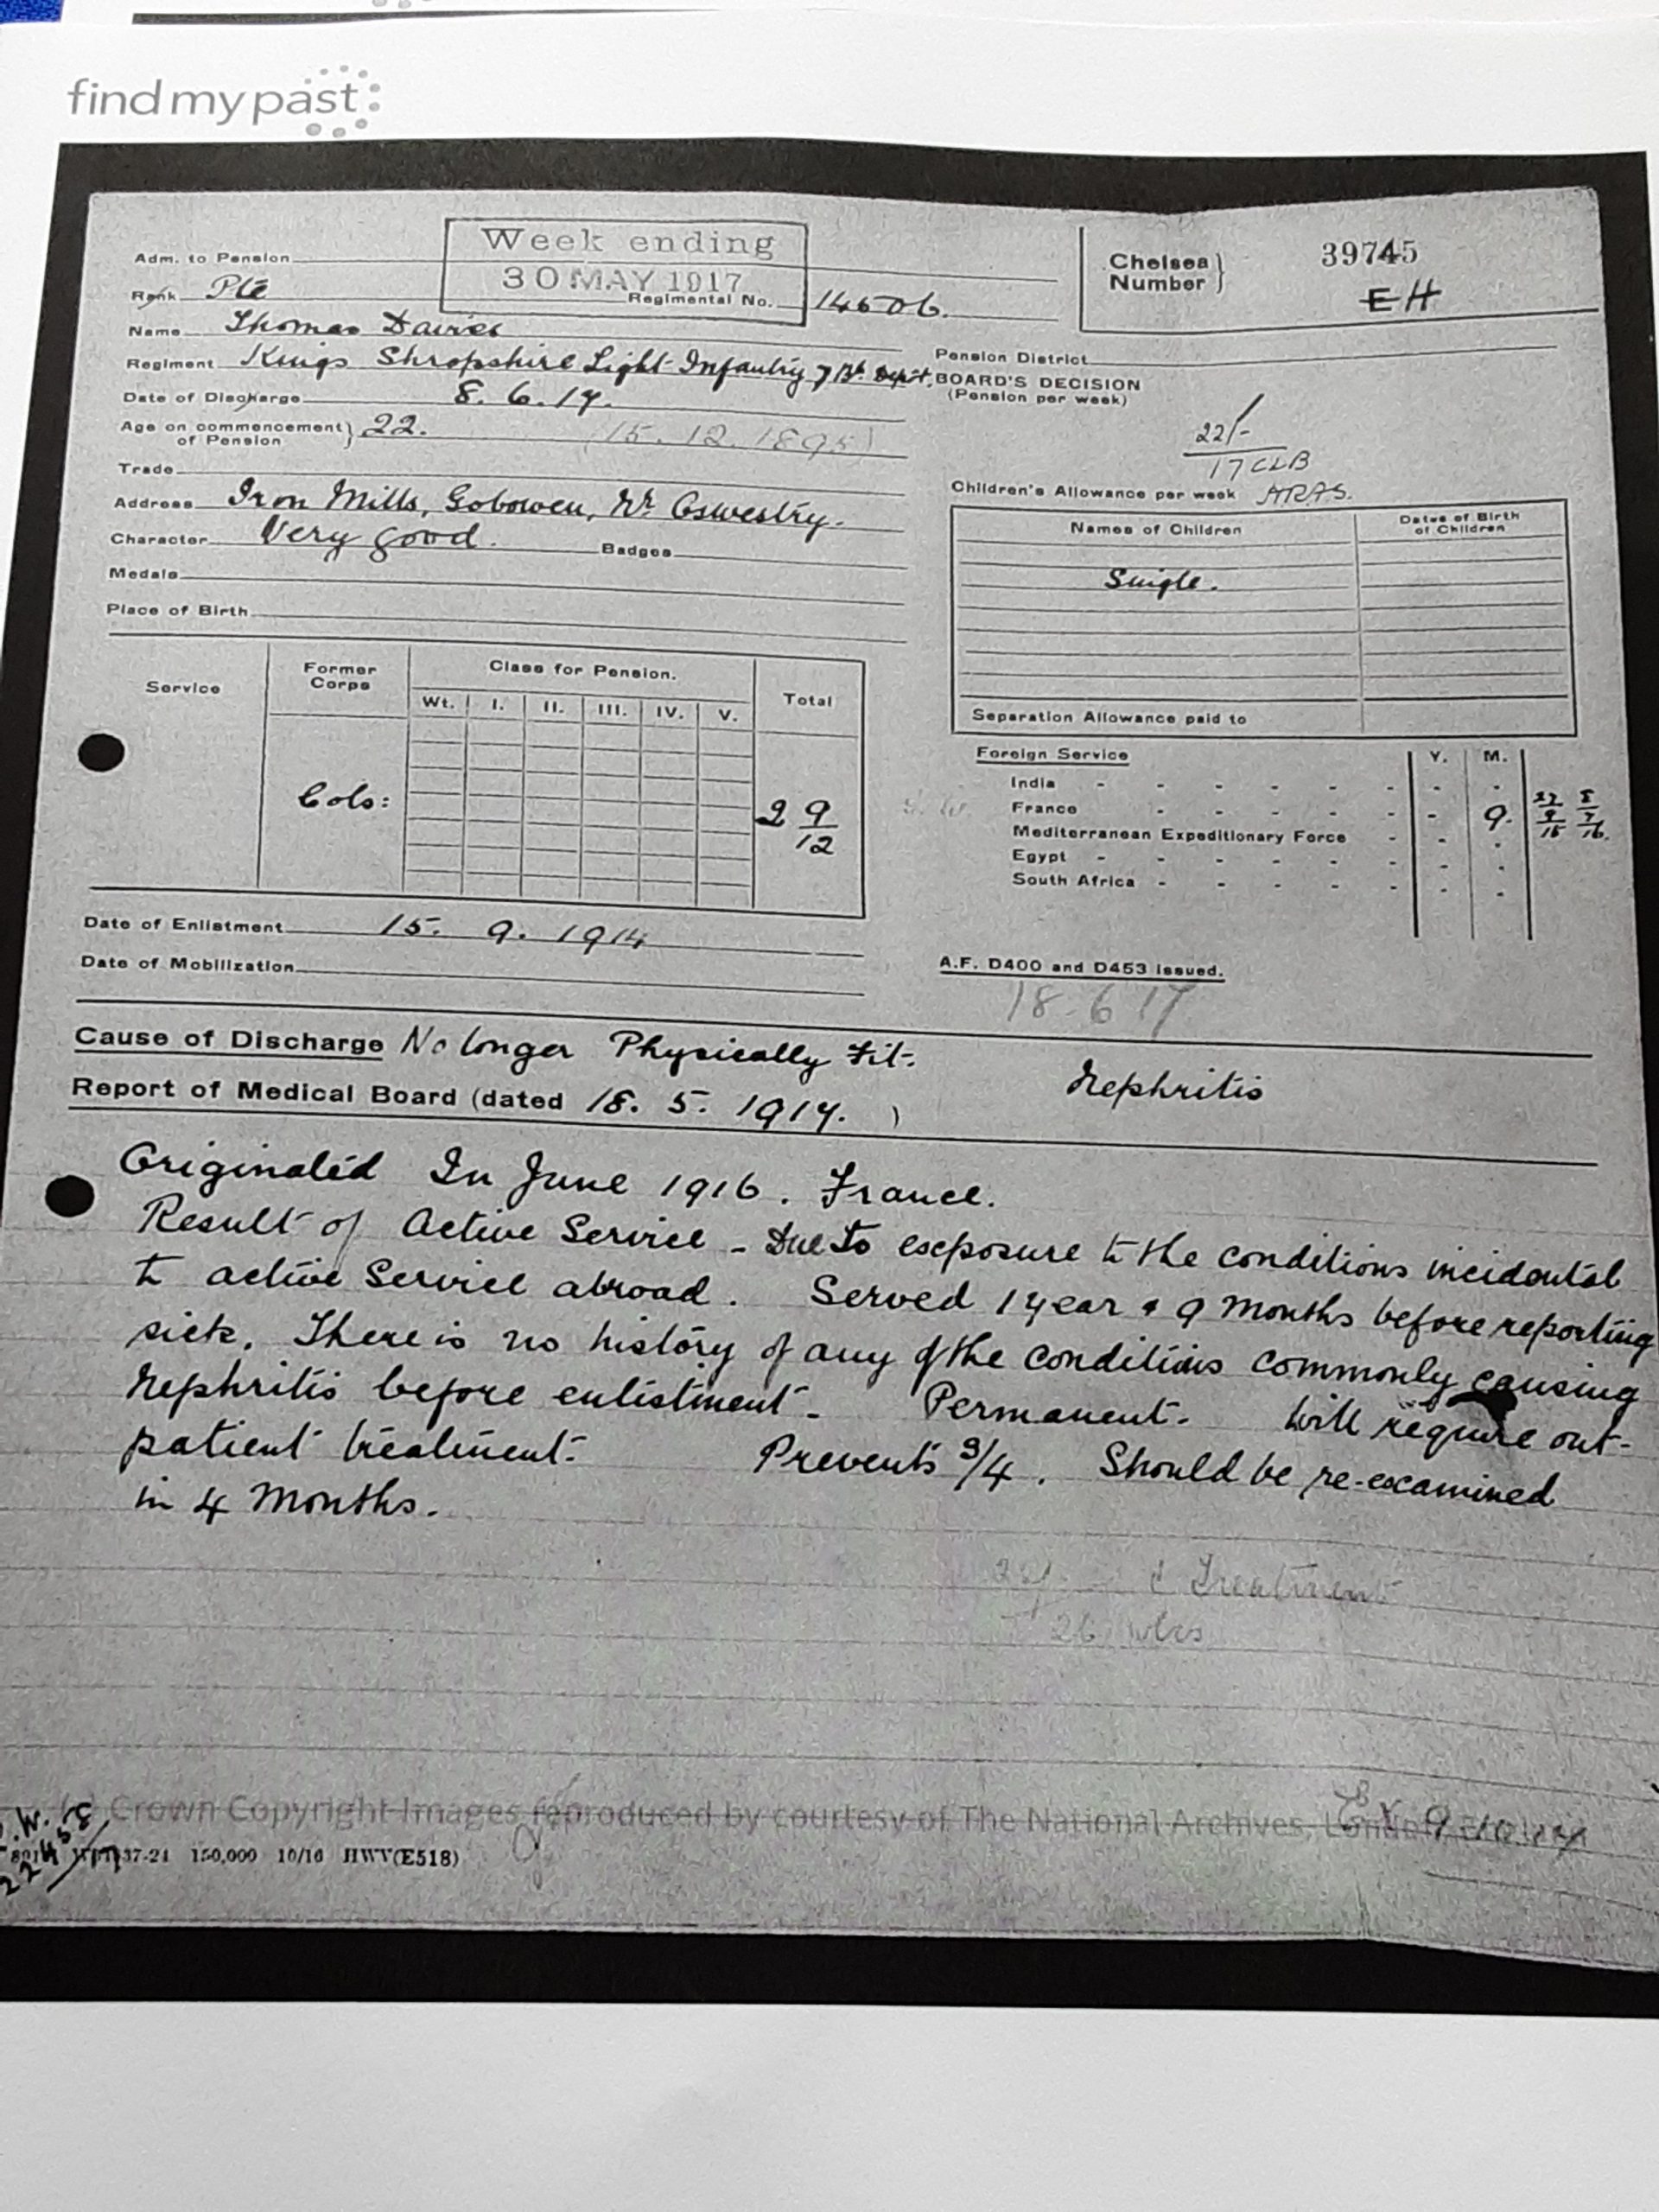 find my past
Week ending
30 MAY 1917
Adm. to Pension
Chelsea Number } 39745
EH
Rank Pte Regimental No. 14506.
Name Thomas Davies
Regiment Kings Shropshire Light Infantry 7 Bt. Depit,
Pension District
Date of Discharge 8. 6. 17.
BOARD'S DECISION
(Pension per week)
22/-
17
Age on commencement of Pension } 22. (15. 12. 1895)
Trade
Children's Allowance per week
Address Iron Mills, Gobowen, Nr. Oswestry.
Character Very good. Badges
Medals
Place of Birth
Names of Children Dates of Birth of Children
Single.
Separation Allowance paid to
Service Former Corps Class for Pension. Total
Wt. I. II. III. IV. V.
Cols: 2 9/12
Foreign Service Y. M.
India - - - - - -
France - - - - - - - 9. 27/9/15 8/7/16.
Mediterranean Expeditionary Force -
Egypt - - - - - -
South Africa - - - - -
Date of Enlistment 15. 9. 1914
Date of Mobilization
A.F. D400 and D453 issued.
18-6 17
Cause of Discharge No longer Physically Fit.
Nephritis
Report of Medical Board (dated 18. 5. 1917. )
Originated In June 1916. France.
Result of Active Service - Due to exposure to the conditions incidental
to active Service abroad. Served 1 year & 9 months before reporting
sick. There is no history of any of the conditions commonly causing
Nephritis before enlistment. Permanent. Will require out-
patient treatment. Prevents 3/4. Should be re-examined
in 4 months.
Treatment
26 wks
(c) Crown Copyright Images reproduced by courtesy of The National Archives, London, England
37-24 150,000 10/16 HWV(E518)